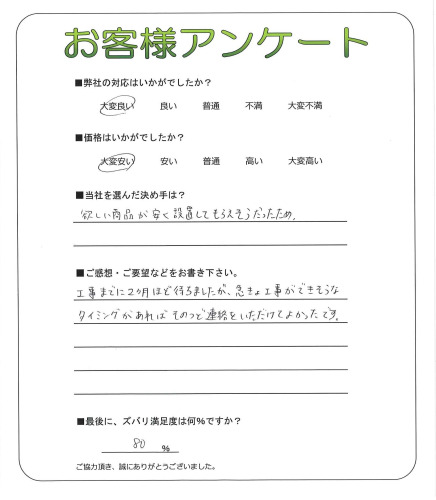 お客様アンケート
■弊社の対応はいかがでしたか？
大変良い 良い 普通 不満 大変不満
■価格はいかがでしたか？
大変安い 安い 普通 高い 大変高い
■当社を選んだ決め手は？
欲しい商品が安く設置してもらえそうだったため。
■ご感想・ご要望などをお書き下さい。
工事までに2ヶ月ほど待ちましたが、急きょ工事ができそうな
タイミングがあればそのつど連絡をいただけてよかったです。
■最後に、ズバリ満足度は何%ですか？
80 %
ご協力頂き、誠にありがとうございました。